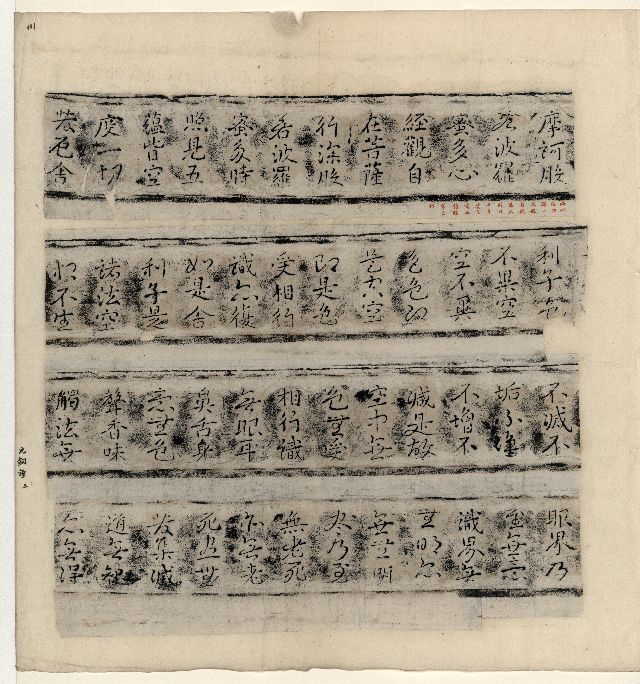 摩訶般
若波羅
蜜多心
經觀自
在菩薩
行深般
若波羅
蜜多時
照見五
蘊皆空
度一切
苦色舍
利子色
不異空
空不異
色色即
是空空
即是色
受相行
識亦復
如是舍
利子是
諸法空
相不生
不滅不
垢不淨
不增不
減是故
空中無
色無受
相行識
無眼耳
鼻舌身
意無色
聲香味
觸法無
眼界乃
至無意
識界無
無明亦
無無明
盡乃至
無老死
亦無老
死盡無
苦集滅
道無智
亦無得